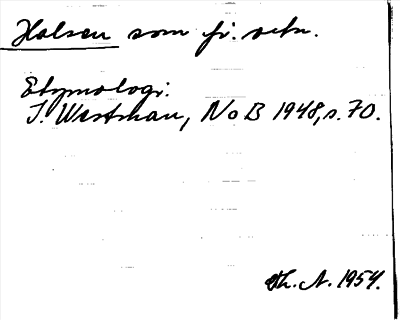 Halsen som fr. vetn.
Etymologi.
I. Westman, NoB 1948, s. 70.
Th. A. 1954.